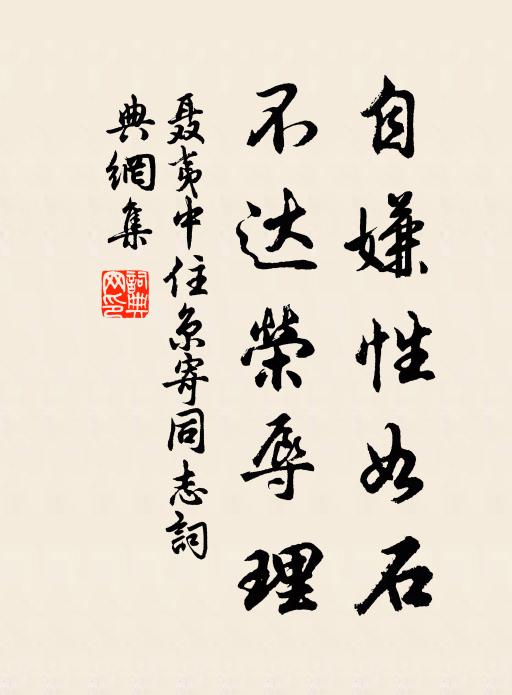 自嫌性如石
不达榮辱理
聂夷中住京寄同志詞
典網集
詞典网印